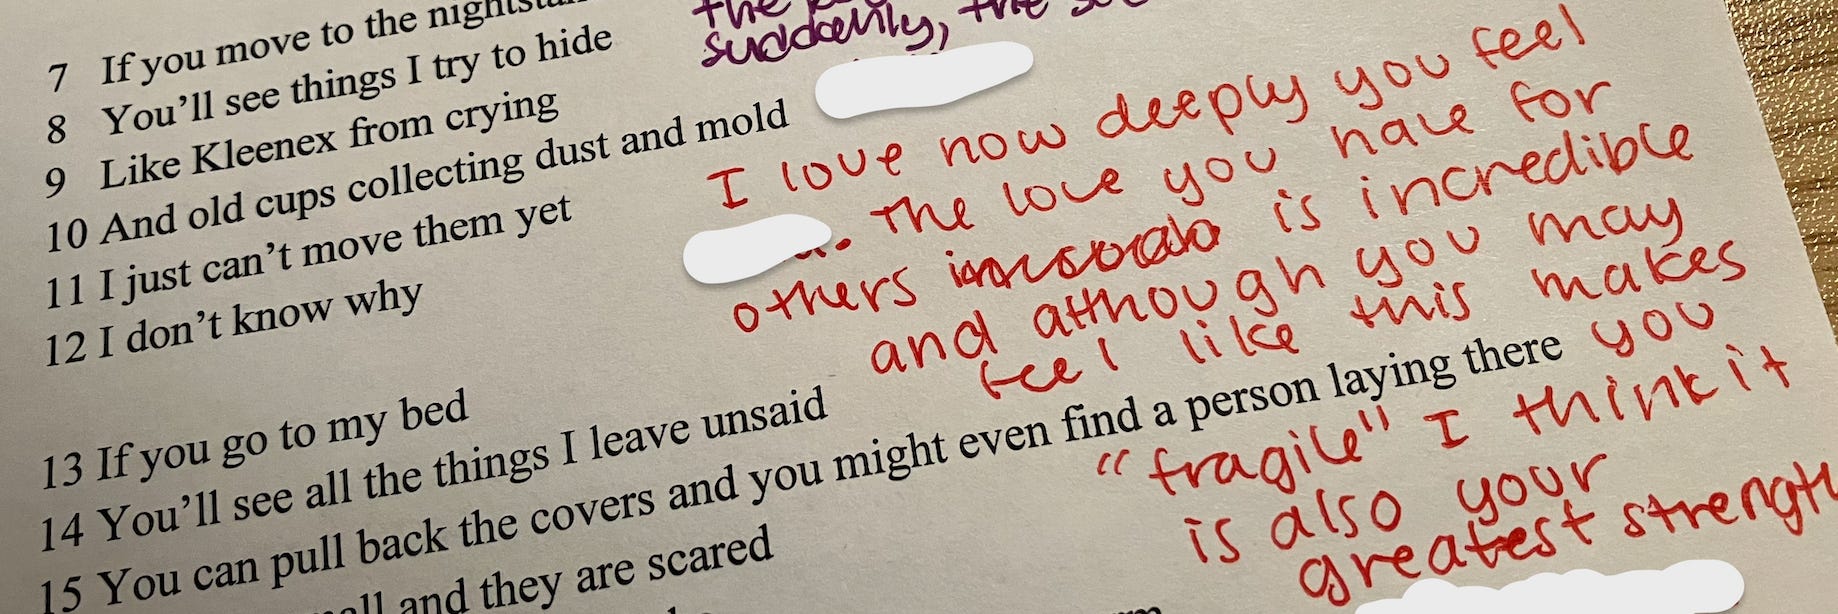 7 If you move to the
8 You'll see things I try to hide
9 Like Kleenex from crying
10 And old cups collecting dust and mold
11 I just can't move them yet
12 I don't know why
13 If you go to my bed
14 You'll see all the things I leave unsaid
15 You can pull back the covers and you might even find a person laying there
and they are scared
the
suddenly, the
I love how deeply you feel
. The love you have for
others is incredible
and although you may
feel like this makes
you
"fragile" I think it
is also your
greatest strength